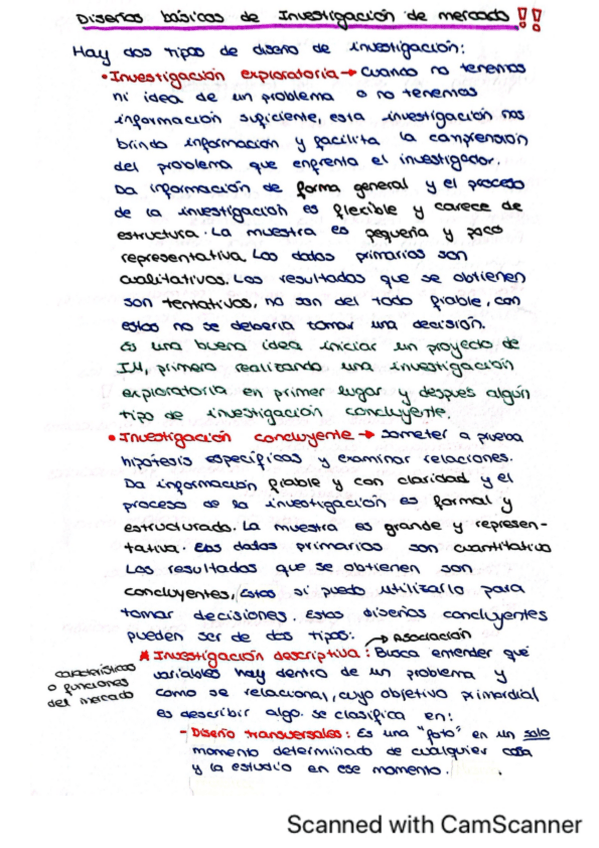 Diseños básicos de Investigación de mercado !!
Hay dos tipos de diseño de investigación:
• Investigación exploratoria → cuando no tenemos
ni idea de un problema o no tenemos
información suficiente, esta investigación nos
brinda información y facilita la comprensión
del problema que enfrenta el investigador.
Da información de forma general y el proceso
de la investigación es flexible y carece de
estructura. La muestra es pequeña y poco
representativa. Los datos primarios son
cualitativos. Los resultados que se obtienen
son tentativos, no son del todo fiable, con
estos no se debería tomar una decisión.
Es una buena idea iniciar un proyecto de
IM, primero realizando una investigación
exploratoria en primer lugar y después algún
tipo de investigación concluyente.
• Investigación concluyente → someter a prueba
hipótesis específicas y examinar relaciones.
Da información fiable y con claridad y el
proceso de la investigación es formal y
estructurado. La muestra es grande y represen-
tativa. Los datos primarios son cuantitativo
Los resultados que se obtienen son
concluyentes, Estos si puedo utilizarlo para
tomar decisiones. Estos diseños concluyentes
pueden ser de dos tipos:
→ Asociación
* Investigación descriptiva: Busca entender qué
variables hay dentro de un problema y
como se relacional, cuyo objetivo primordial
es describir algo. se clasifica en:
características
o funciones
del mercado
- Diseño transversales: Es una "foto" en un solo
momento determinado de cualquier cosa
y la estudio en ese momento.
Scanned with CamScanner